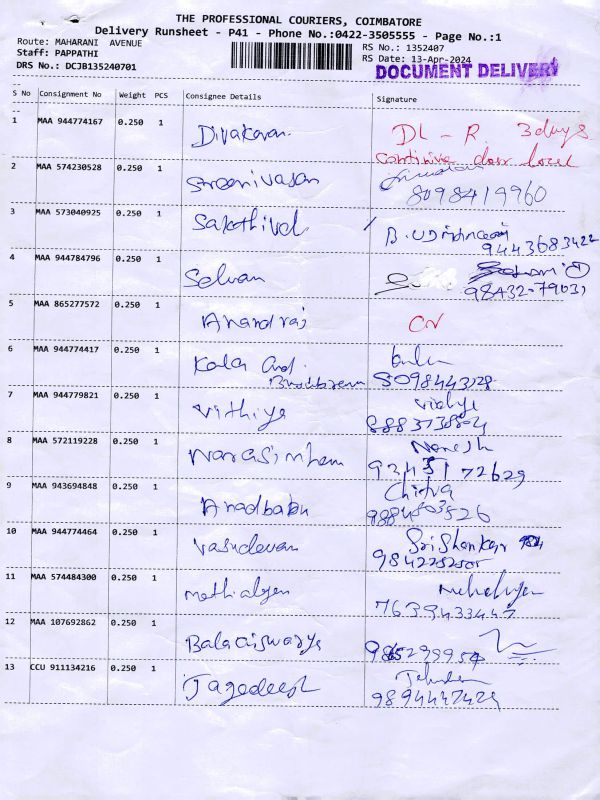 THE PROFESSIONAL COURIERS, COIMBATORE
Delivery Runsheet - P41 - Phone No.:0422-3505555 - Page No.:1
Route: MAHARANI AVENUE
RS No.: 1352407
Staff: PAPPATHI
RS Date: 13-Apr-2024
DRS No.: DCJB135240701
DOCUMENT DELIVERY
S No Consignment No Weight PCS Consignee Details Signature
1 MAA 944774167 0.250 1 Divakaran DL - R. 3 days
door local
2 MAA 574230528 0.250 1 Sreenivasan
8098419960
3 MAA 573040925 0.250 1 Sakthivel
9443683422
4 MAA 944784796 0.250 1 Selvan
98432-79031
5 MAA 865277572 0.250 1 Anandraj
6 MAA 944774417 0.250 1 Kala And
8098443128
7 MAA 944779821 0.250 1 Vithiya Vidhya
8 MAA 572119228 0.250 1 Narasimhan Naresh
9 MAA 943694848 0.250 1 Anadbabu Chitra
10 MAA 944774464 0.250 1 Vasudevan Sri Shankar
11 MAA 574484300 0.250 1
7639433447
12 MAA 107692862 0.250 1
13 CCU 911134216 0.250 1 Jagadeesh
9894447429